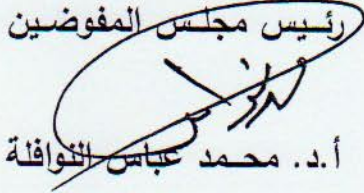 رئيس مجلس المفوضين
أ.د. محمد عباس النوافلة